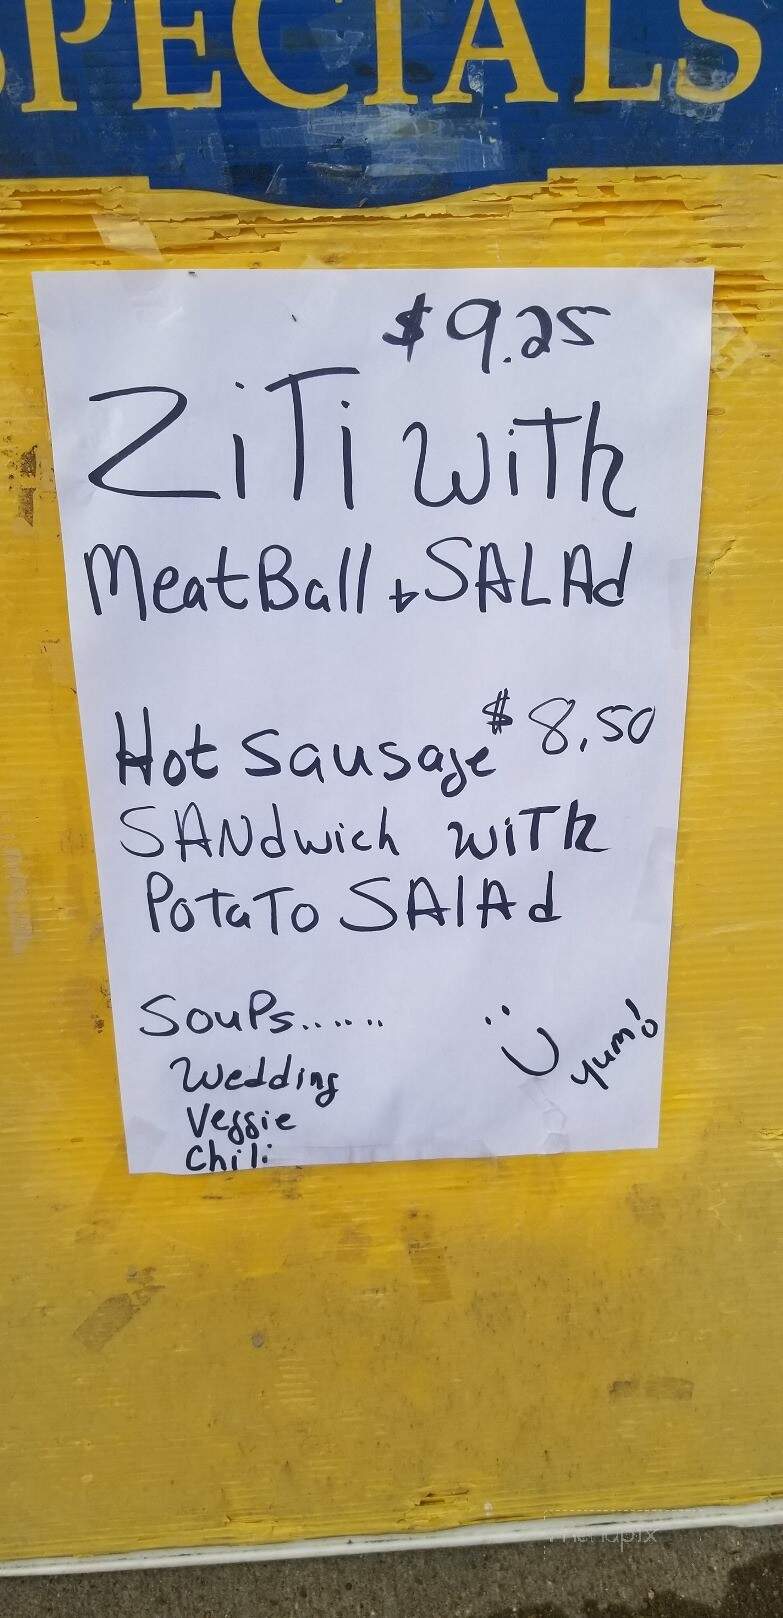 SPECIALS
$9.25
ZiTi with
MeatBall + SALAd
Hot Sausage $8.50
SANdwich wiTh
PotaTo SAlAd
SouPs......
Wedding
Veggie
Chili
yum!
menupix